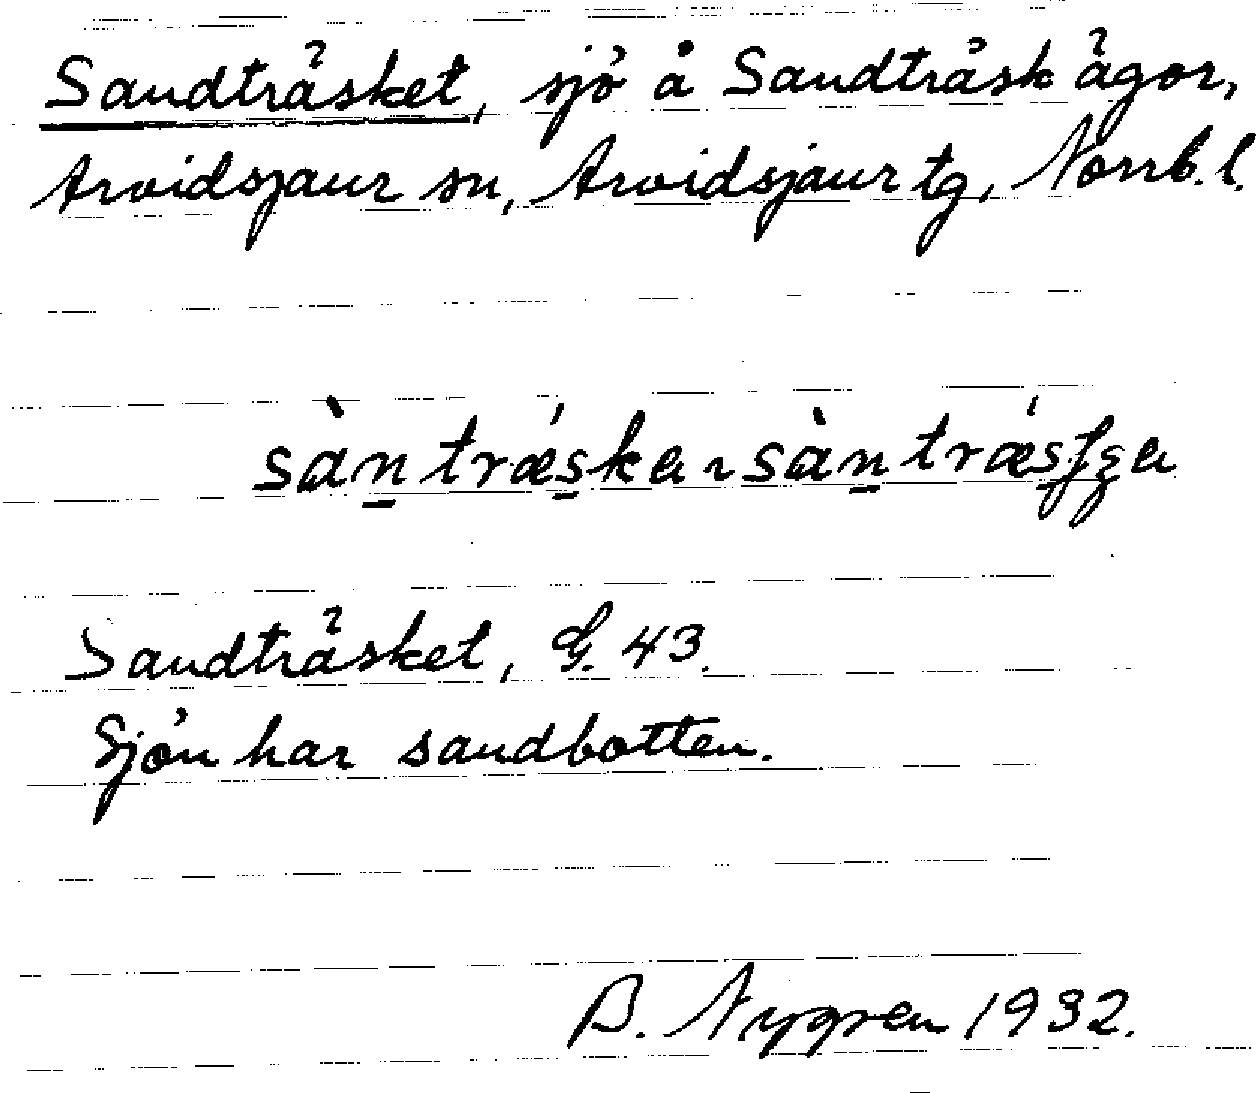 Sandträsket, sjö å Sandträsk ägor,
Arvidsjaur sn, Arvidsjaur tg, Norrb. l.
sàn̠ trǽs̠ka ~ sàn̠ trǽs̠
Sandträsket, G. 43.
Sjön har sandbotten.
B. Nygren 1932.